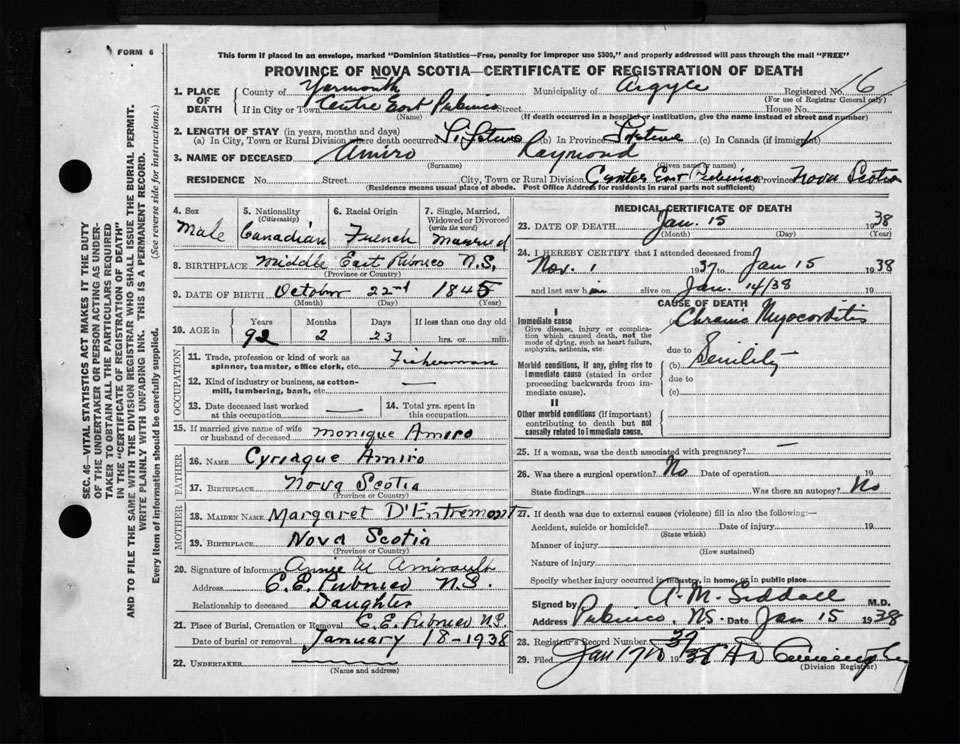 FORM 6
This form if placed in an envelope, marked "Dominion Statistics—Free, penalty for improper use $300," and properly addressed will pass through the mail "FREE"
PROVINCE OF NOVA SCOTIA—CERTIFICATE OF REGISTRATION OF DEATH
SEC. 46—VITAL STATISTICS ACT MAKES IT THE DUTY
OF THE UNDERTAKER OR PERSON ACTING AS UNDER-
TAKER TO OBTAIN ALL THE PARTICULARS REQUIRED
IN THE "CERTIFICATE OF REGISTRATION OF DEATH"
AND TO FILE THE SAME WITH THE DIVISION REGISTRAR WHO SHALL ISSUE THE BURIAL PERMIT.
WRITE PLAINLY WITH UNFADING INK. THIS IS A PERMANENT RECORD.
Every item of information should be carefully supplied. (See reverse side for instructions.)
1. PLACE OF DEATH County of Yarmouth Municipality of Argyle Registered No. 6
(For use of Registrar General only)
If in City or Town Centre East Pubnico Street House No.
(Name) (If death occurred in a hospital or institution, give the name instead of street and number)
2. LENGTH OF STAY (in years, months and days)
(a) In City, Town or Rural Division where death occurred Lifetime (b) In Province Lifetime (c) In Canada (if immigrant)
3. NAME OF DECEASED Amiro Raymond
(Surname) (Given name or names)
RESIDENCE No. Street City, Town or Rural Division Center East Pubnico Province Nova Scotia
(Residence means usual place of abode. Post Office Address for residents in rural parts not sufficient)
4. Sex Male
5. Nationality (Citizenship) Canadian
6. Racial Origin French
7. Single, Married, Widowed or Divorced (write the word) Married
8. BIRTHPLACE Middle East Pubnico N.S.
(Province or Country)
9. DATE OF BIRTH October 22nd 1845
(Month) (Day) (Year)
10. AGE in Years Months Days If less than one day old
92 2 23 hrs. or min.
OCCUPATION
11. Trade, profession or kind of work as spinner, teamster, office clerk, etc. Fisherman
12. Kind of industry or business, as cotton-mill, lumbering, bank, etc. —
13. Date deceased last worked at this occupation —
14. Total yrs. spent in this occupation —
15. If married give name of wife or husband of deceased Monique Amiro
FATHER
16. NAME Cyriaque Amiro
17. BIRTHPLACE Nova Scotia
(Province or Country)
MOTHER
18. MAIDEN NAME Margaret D'Entremont
19. BIRTHPLACE Nova Scotia
(Province or Country)
20. Signature of informant Annie M Amirault
Address C.E. Pubnico N.S.
Relationship to deceased Daughter
21. Place of Burial, Cremation or Removal C.E. Pubnico N.S.
Date of burial or removal January 18-1938
22. UNDERTAKER
(Name and address)
MEDICAL CERTIFICATE OF DEATH
23. DATE OF DEATH Jan. 15 1938
(Month) (Day) (Year)
24. I HEREBY CERTIFY that I attended deceased from
Nov. 1 1937 to Jan 15 1938
and last saw him alive on Jan. 14/38
CAUSE OF DEATH
I
Immediate cause Chronic Myocorditis
Give disease, injury or complication which caused death, not the mode of dying, such as heart failure, asphyxia, asthenia, etc.
due to
Morbid conditions, if any, giving rise to immediate cause (stated in order proceeding backwards from immediate cause).
(b) Senility
due to
(c)
II
Other morbid conditions (if important) contributing to death but not causally related to immediate cause.
25. If a woman, was the death associated with pregnancy? —
26. Was there a surgical operation? No Date of operation 19
State findings Was there an autopsy? No
27. If death was due to external causes (violence) fill in also the following:—
Accident, suicide or homicide? Date of injury 19
(State which)
Manner of injury
(How sustained)
Nature of injury
Specify whether injury occurred in industry, in home, or in public place
Signed by A. M. Siddall M.D.
Address Pubnico, NS. Date Jan 15 1938
28. Registrar's Record Number 39
29. Filed Jan 17th 1938
(Division Registrar)